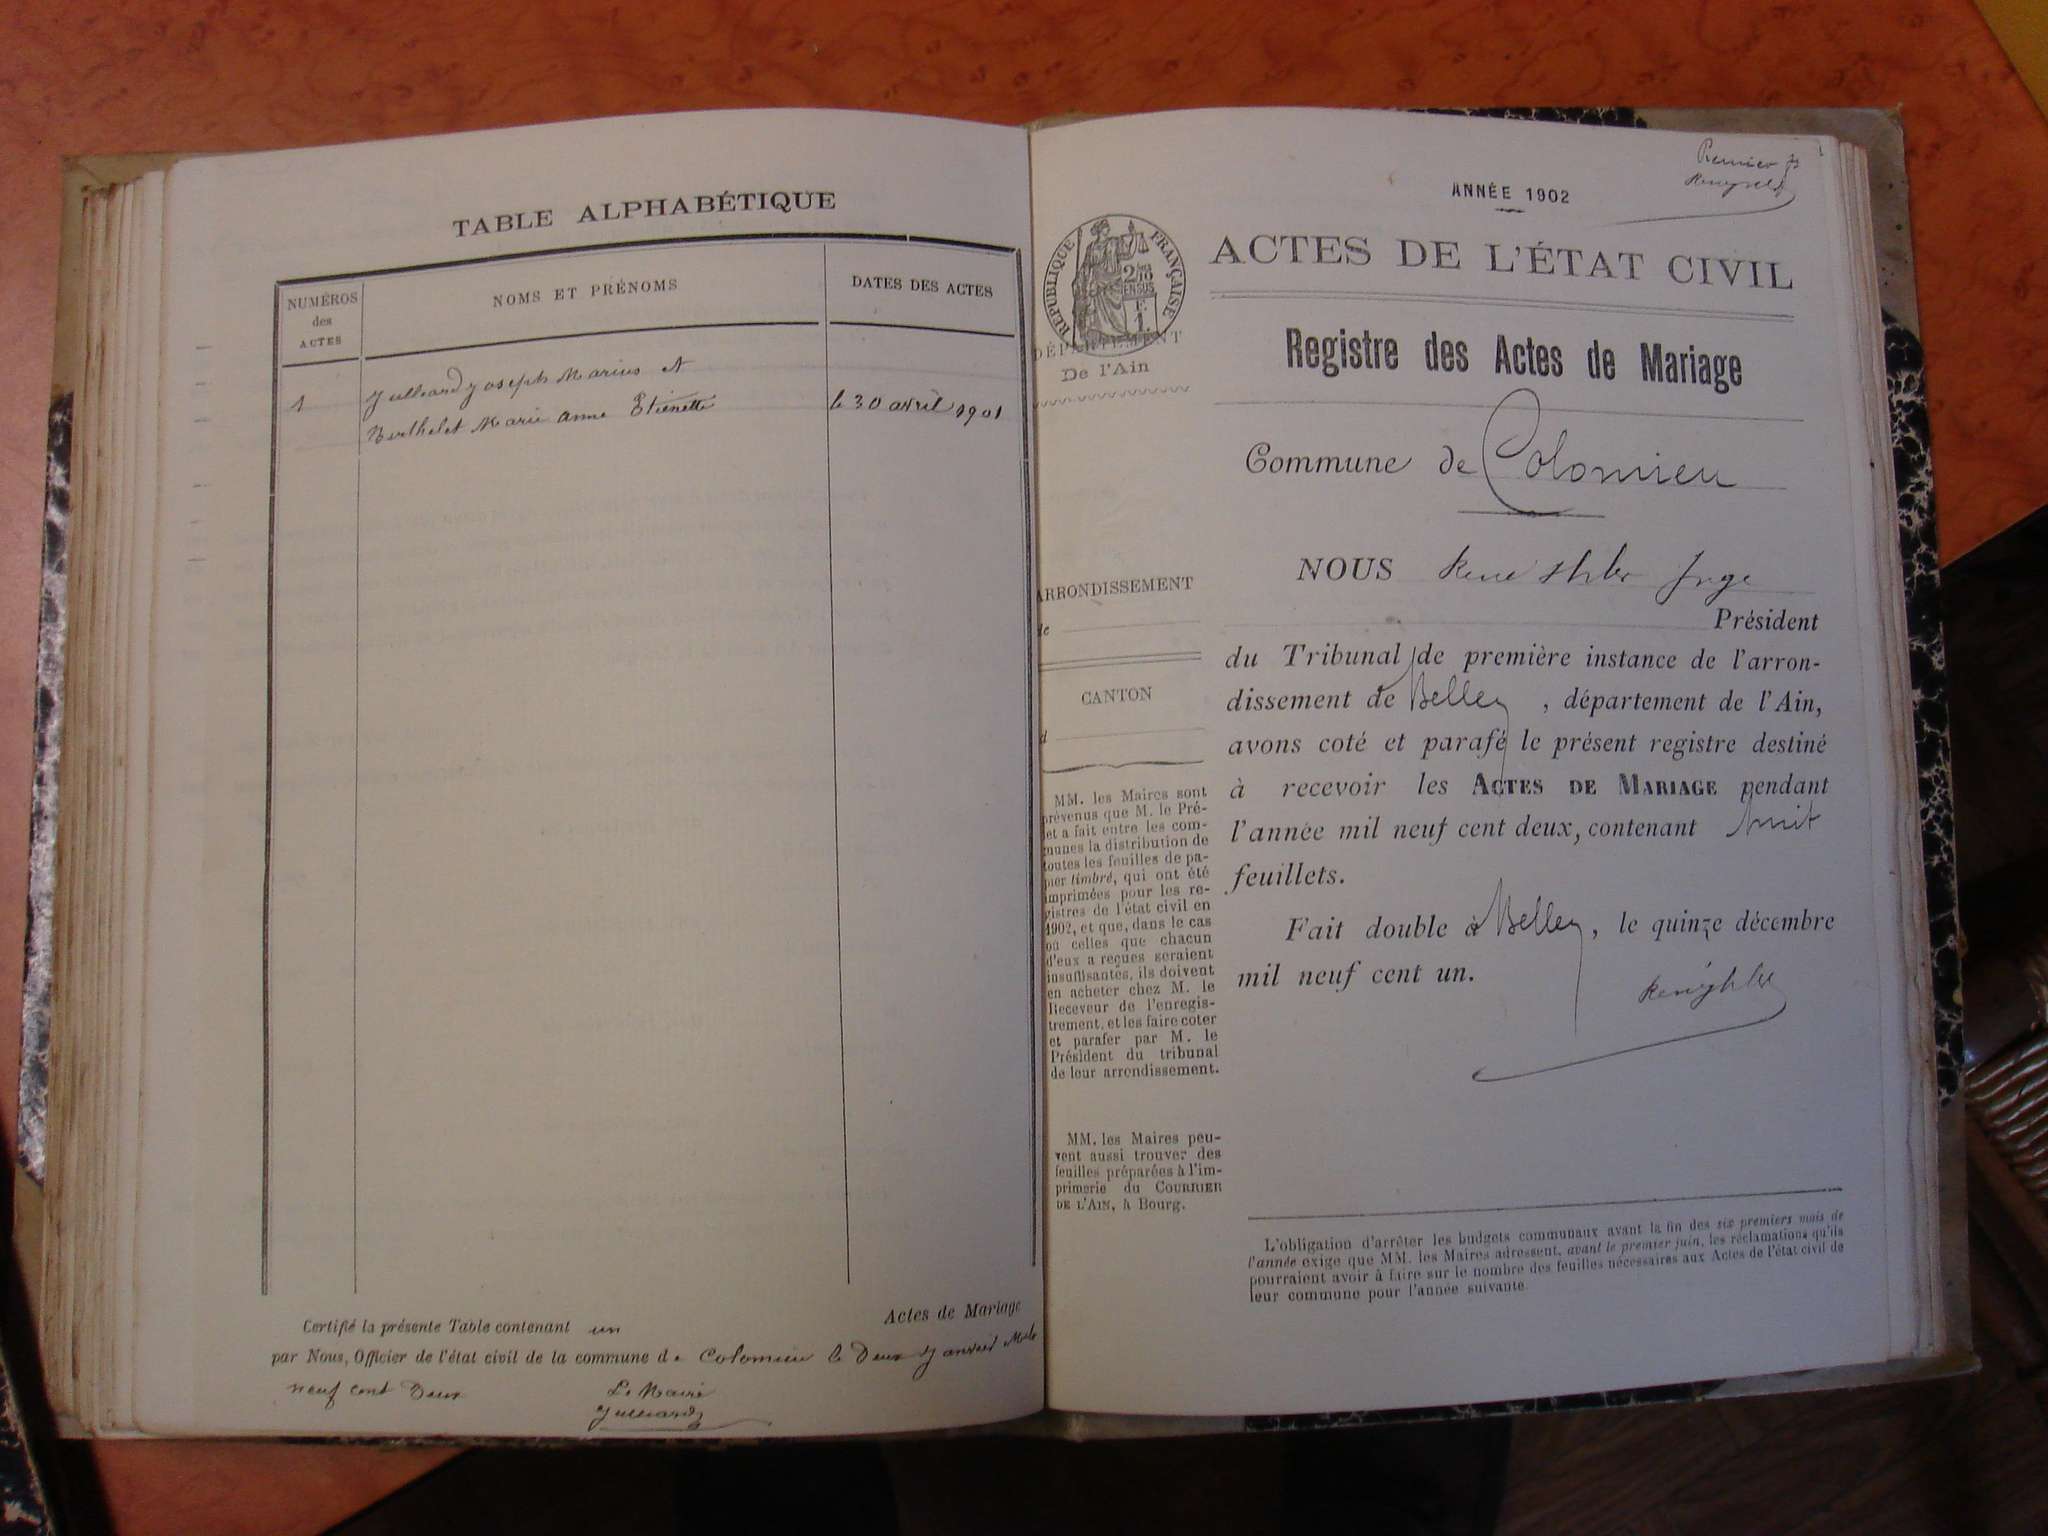 TABLE ALPHABÉTIQUE
NUMÉROS
des
ACTES
NOMS ET PRÉNOMS
DATES DES ACTES
1
Julliand Joseph Marius et
Berthelet Marie Anne Etienette
le 30 avril 1901
Certifié la présente Table contenant un
Actes de Mariage
par Nous, Officier de l'état civil de la commune de Colomieu le Deux Janvier Mil
neuf cent Deux
Le Maire
Julliand
Premier
ANNÉE 1902
ACTES DE L'ÉTAT CIVIL
RÉPUBLIQUE FRANÇAISE
2/10
EN SUS
F.
1.
DÉPARTEMENT
De l'Ain
Registre des Actes de Mariage
Commune de Colomieu
NOUS René Juge
Président
du Tribunal de première instance de l'arron-
dissement de Belley, département de l'Ain,
avons coté et parafé le présent registre destiné
à recevoir les ACTES DE MARIAGE pendant
l'année mil neuf cent deux, contenant huit
feuillets.
Fait double à Belley, le quinze décembre
mil neuf cent un.
ARRONDISSEMENT
de
CANTON
d
MM. les Maires sont
prévenus que M. le Pré-
et a fait entre les com-
munes la distribution de
toutes les feuilles de pa-
pier timbré, qui ont été
imprimées pour les re-
gistres de l'état civil en
1902, et que, dans le cas
où celles que chacun
d'eux a reçues seraient
insuffisantes, ils doivent
en acheter chez M. le
Receveur de l'enregis-
trement, et les faire coter
et parafer par M. le
Président du tribunal
de leur arrondissement.
MM. les Maires peu-
vent aussi trouver des
feuilles préparées à l'im-
primerie du COURRIER
DE L'AIN, à Bourg.
L'obligation d'arrêter les budgets communaux avant la fin des six premiers mois de
l'année exige que MM. les Maires adressent, avant le premier juin, les réclamations qu'ils
pourraient avoir à faire sur le nombre des feuilles nécessaires aux Actes de l'état civil de
leur commune pour l'année suivante.